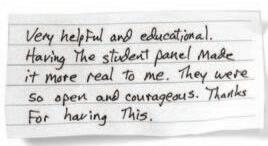 Very helpful and educational.
Having The student panel made
it more real to me. They were
so open and courageous. Thanks
For having This.